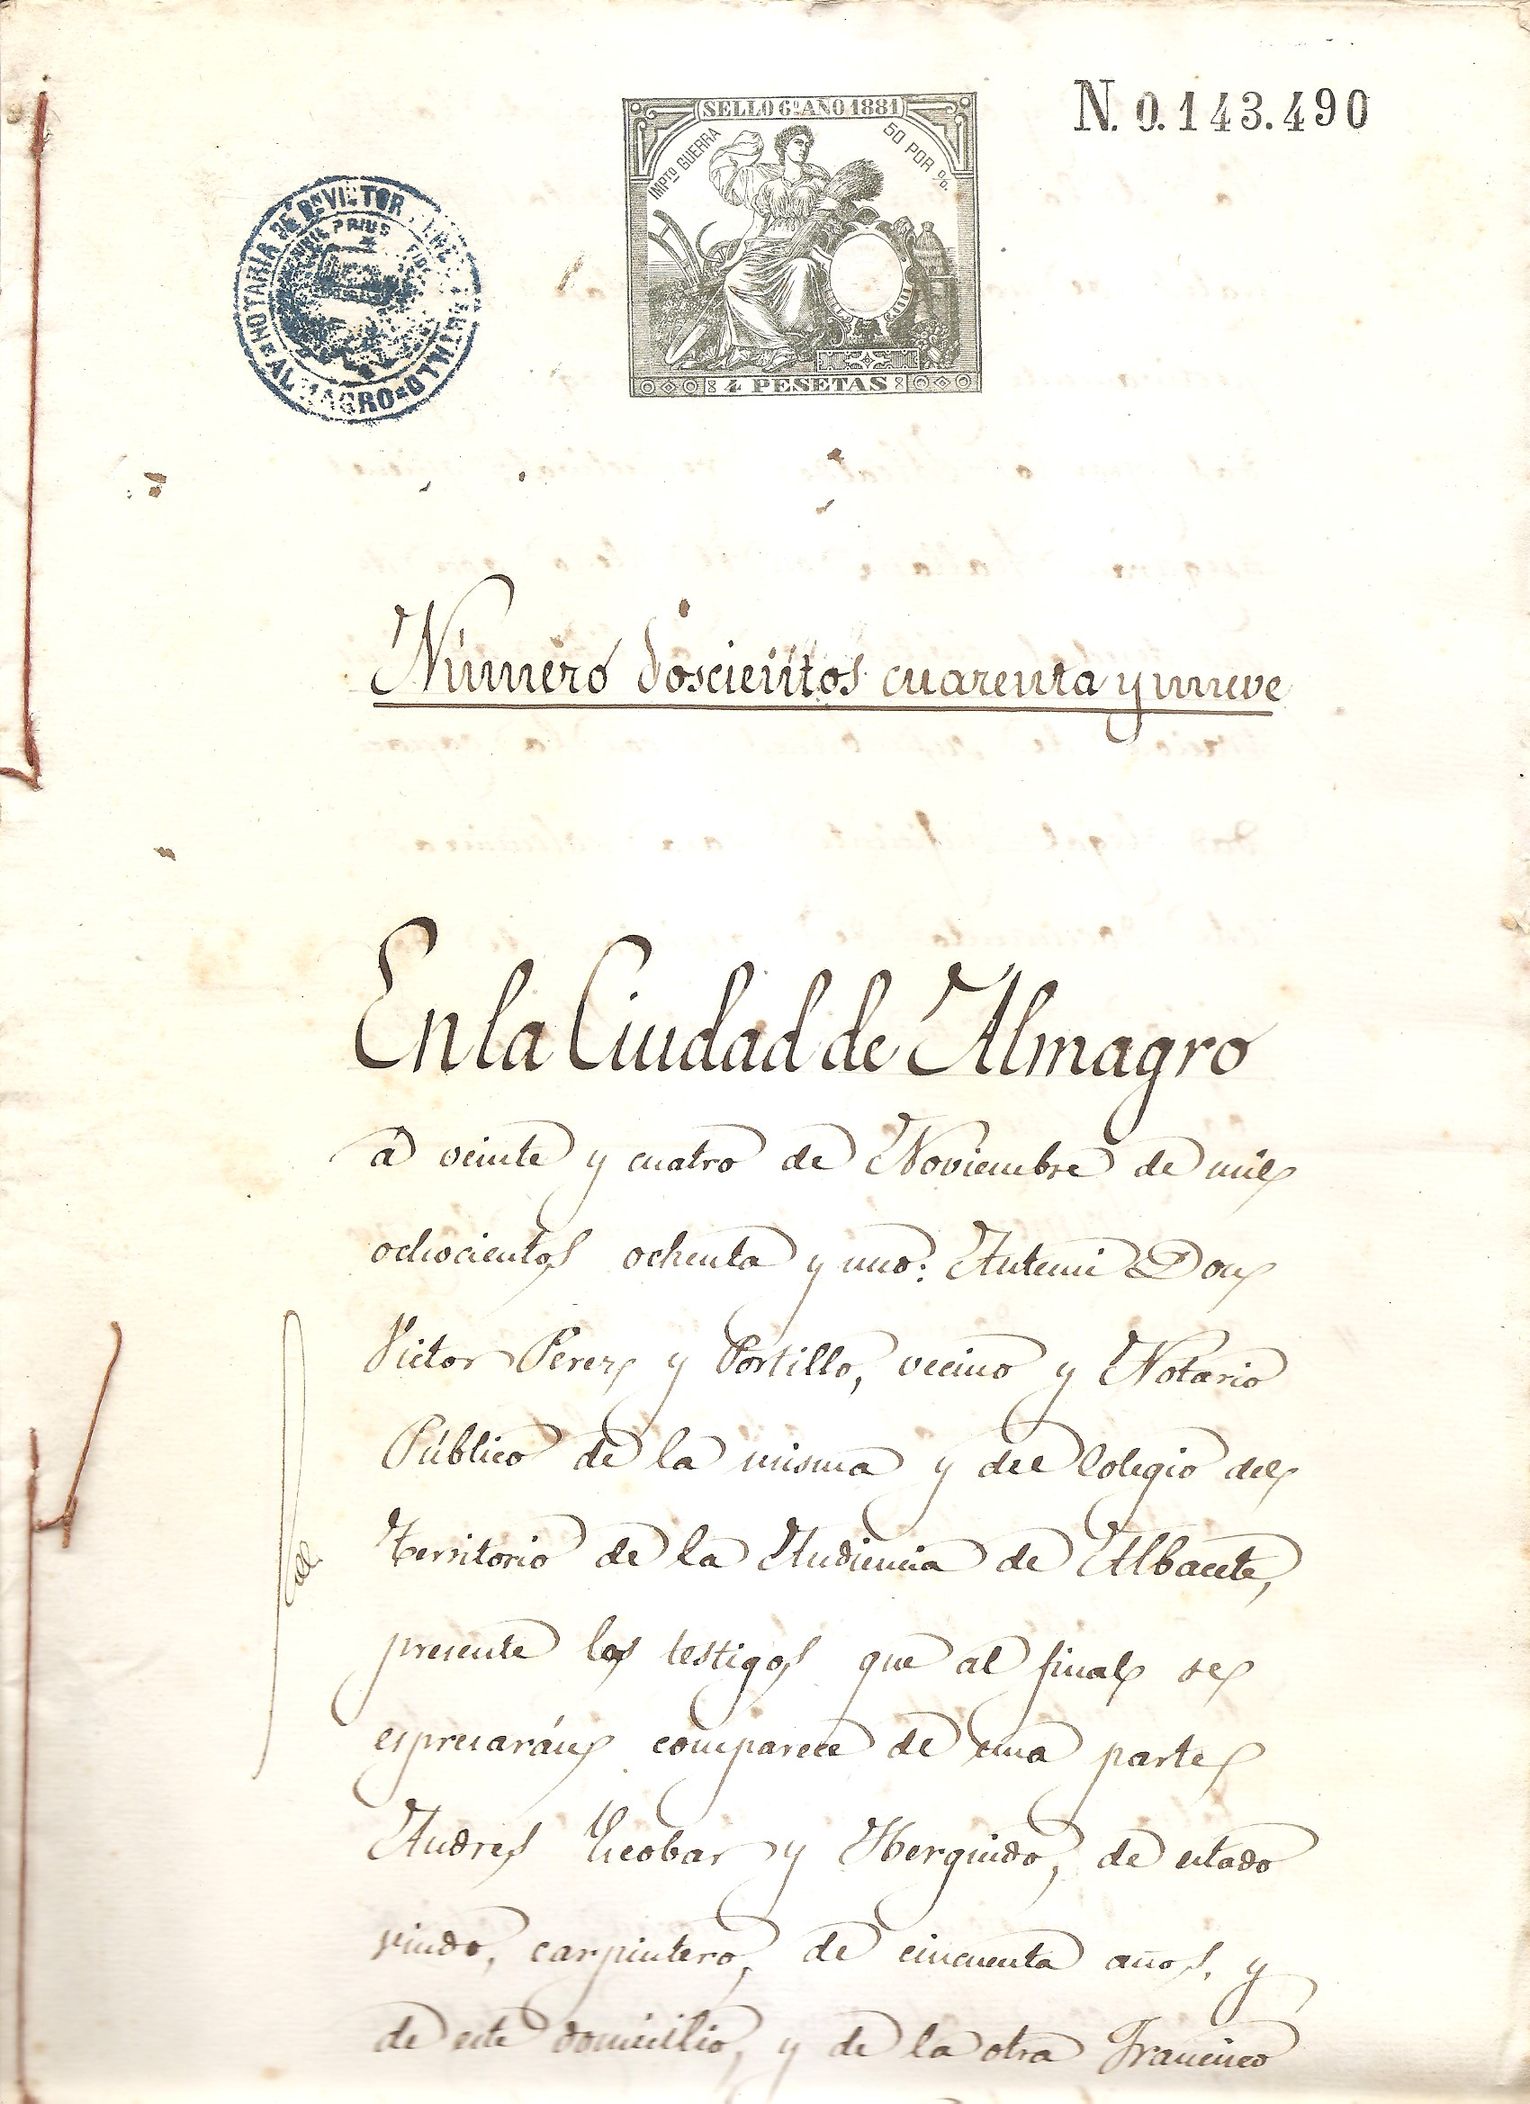 N. 0.143.490
SELLO 6º AÑO 1881
IMPTO GUERRA
50 POR %.
4 PESETAS
NOTARIA DE Dn VICTOR
PORTILLO
ALMAGRO
NIHIL PRIUS FIDE
Número doscientos cuarenta y nueve
En la Ciudad de Almagro
á veinte y cuatro de Noviembre de mil
ochocientos ochenta y uno: Antemi Don
Victor Perez y Portillo, vecino y Notario
Público de la misma y del Colegio del
Territorio de la Audiencia de Albacete,
presente los testigos que al final se
espresarán, comparece de una parte
Andres Escobar y Herguido, de estado
viudo, carpintero, de cincuenta años, y
de este domicilio, y de la otra Francisco